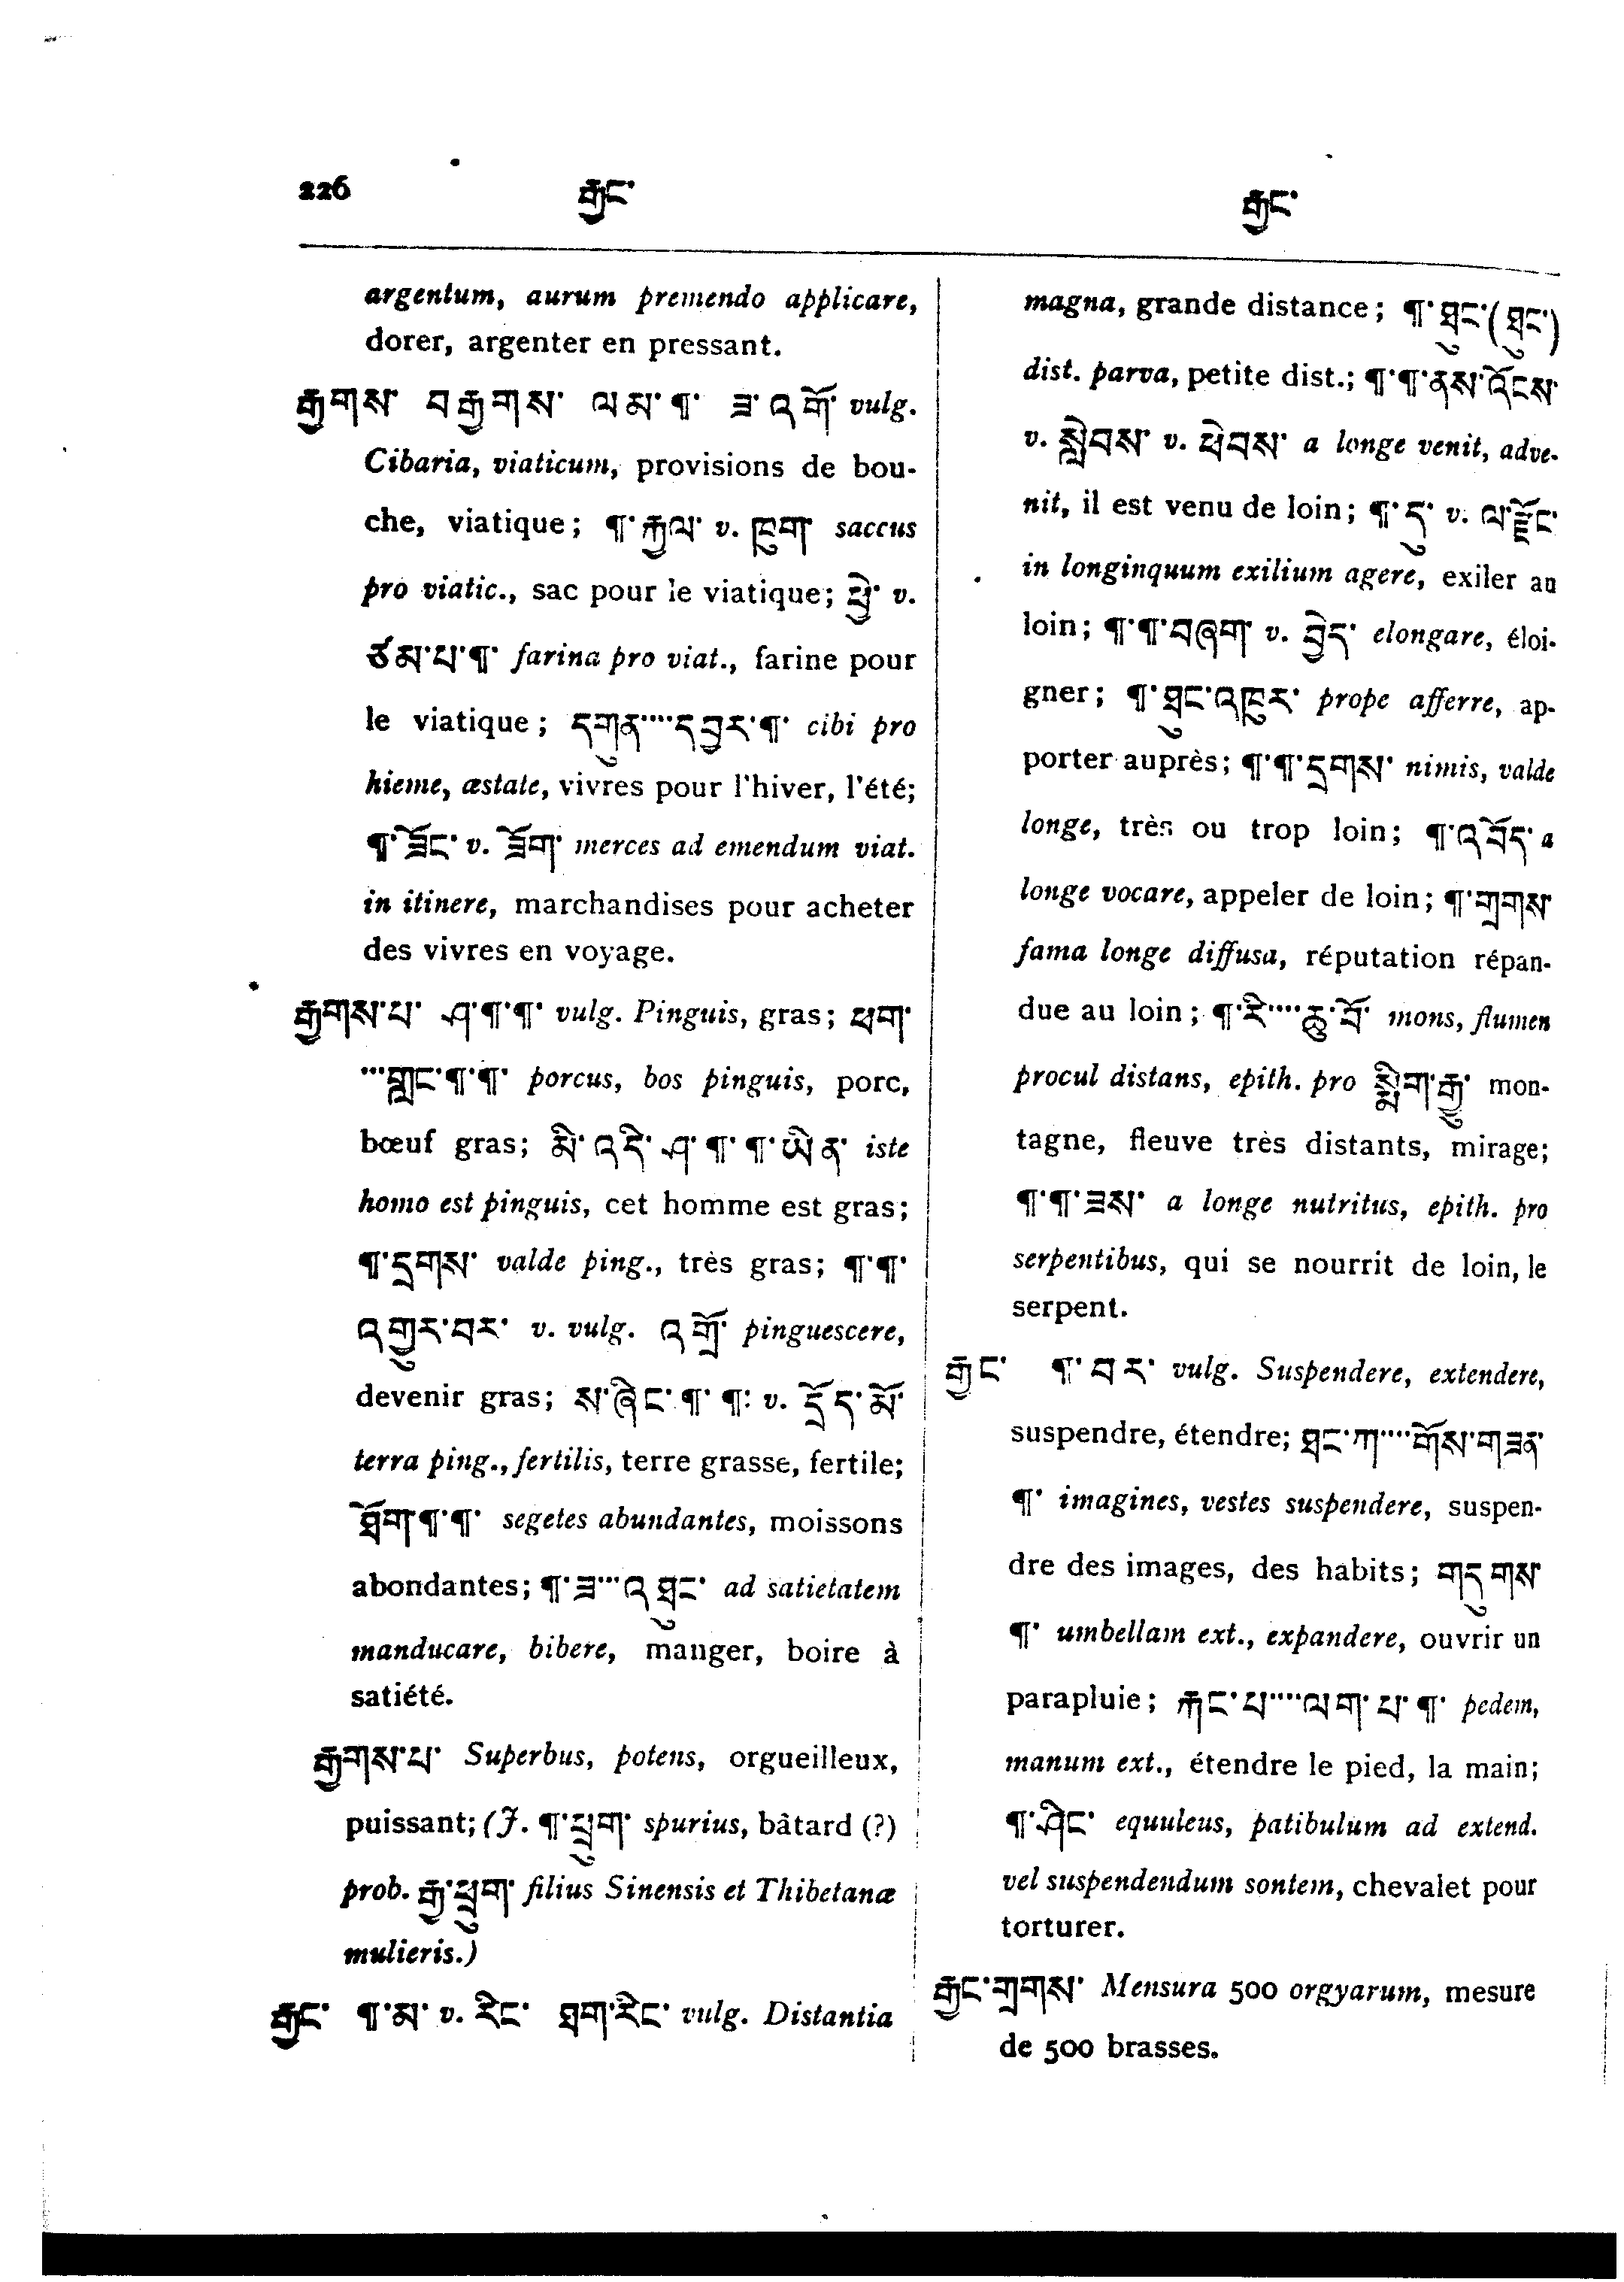 226
རྒྱང་
རྒྱང་
argentum, aurum premendo applicare,
dorer, argenter en pressant.
རྒྱགས་ བརྒྱགས་ ལམ་¶་ ཟ་འགོ་ vulg.
Cibaria, viaticum, provisions de bou-
che, viatique; ¶་རྐྱལ་ v. ཁུག་ saccus
pro viatic., sac pour le viatique; ཕྱེ་ v.
ཙམ་པ་¶་ farina pro viat., farine pour
le viatique; དགུན་····དབྱར་¶་ cibi pro
hieme, æstate, vivres pour l'hiver, l'été;
¶་ཟོང་ v. ཟོག་ merces ad emendum viat.
in itinere, marchandises pour acheter
des vivres en voyage.
རྒྱགས་པ་ ཤ་¶་¶་ vulg. Pinguis, gras; ཕག་
···གླང་¶་¶་ porcus, bos pinguis, porc,
bœuf gras; མི་འདི་ཤ་¶་¶་ཡིན་ iste
homo est pinguis, cet homme est gras;
¶་དྲགས་ valde ping., très gras; ¶་¶་
འགྱུར་བར་ v. vulg. འགྲོ་ pinguescere,
devenir gras; ས་ཞིང་¶་¶: v. དྲོད་མོ་
terra ping., fertilis, terre grasse, fertile;
ཐོག་¶་¶་ segetes abundantes, moissons
abondantes; ¶་ཟ་···འཐུང་ ad satietatem
manducare, bibere, manger, boire à
satiété.
རྒྱགས་པ་ Superbus, potens, orgueilleux,
puissant; (J. ¶་ཕྲུག་ spurius, bâtard (?)
prob. རྒྱ་ཕྲུག་ filius Sinensis et Thibetanæ
mulieris.)
རྒྱང་ ¶་མ་ v. རིང་ ཐག་རིང་ vulg. Distantia
magna, grande distance; ¶་ཐུང་(ཐུང་)
dist. parva, petite dist.; ¶་¶་ནས་འོངས་
v. སླེབས་ v. ཕེབས་ a longe venit, adve-
nit, il est venu de loin; ¶་དུ་ v. ལ་རྫོང་
in longinquum exilium agere, exiler au
loin; ¶་¶་བཞག་ v. བྱེད་ elongare, éloi-
gner; ¶་ཐུང་འཁུར་ prope afferre, ap-
porter auprès; ¶་¶་དྲགས་ nimis, valde
longe, très ou trop loin; ¶་འབོད་ a
longe vocare, appeler de loin; ¶་གྲགས་
fama longe diffusa, réputation répan-
due au loin; ¶་རི་····ཆུ་བོ་ mons, flumen
procul distans, epith. pro སྨིག་རྒྱུ་ mon-
tagne, fleuve très distants, mirage;
¶་¶་ཟས་ a longe nutritus, epith. pro
serpentibus, qui se nourrit de loin, le
serpent.
རྒྱང་ ¶་བར་ vulg. Suspendere, extendere,
suspendre, étendre; ཐང་ཀ་····གོས་གཟན་
¶་ imagines, vestes suspendere, suspen-
dre des images, des habits; གདུགས་
¶་ umbellam ext., expandere, ouvrir un
parapluie; རྐང་པ་····ལག་པ་¶་ pedem,
manum ext., étendre le pied, la main;
¶་ཤིང་ equuleus, patibulum ad extend.
vel suspendendum sontem, chevalet pour
torturer.
རྒྱང་གྲགས་ Mensura 500 orgyarum, mesure
de 500 brasses.